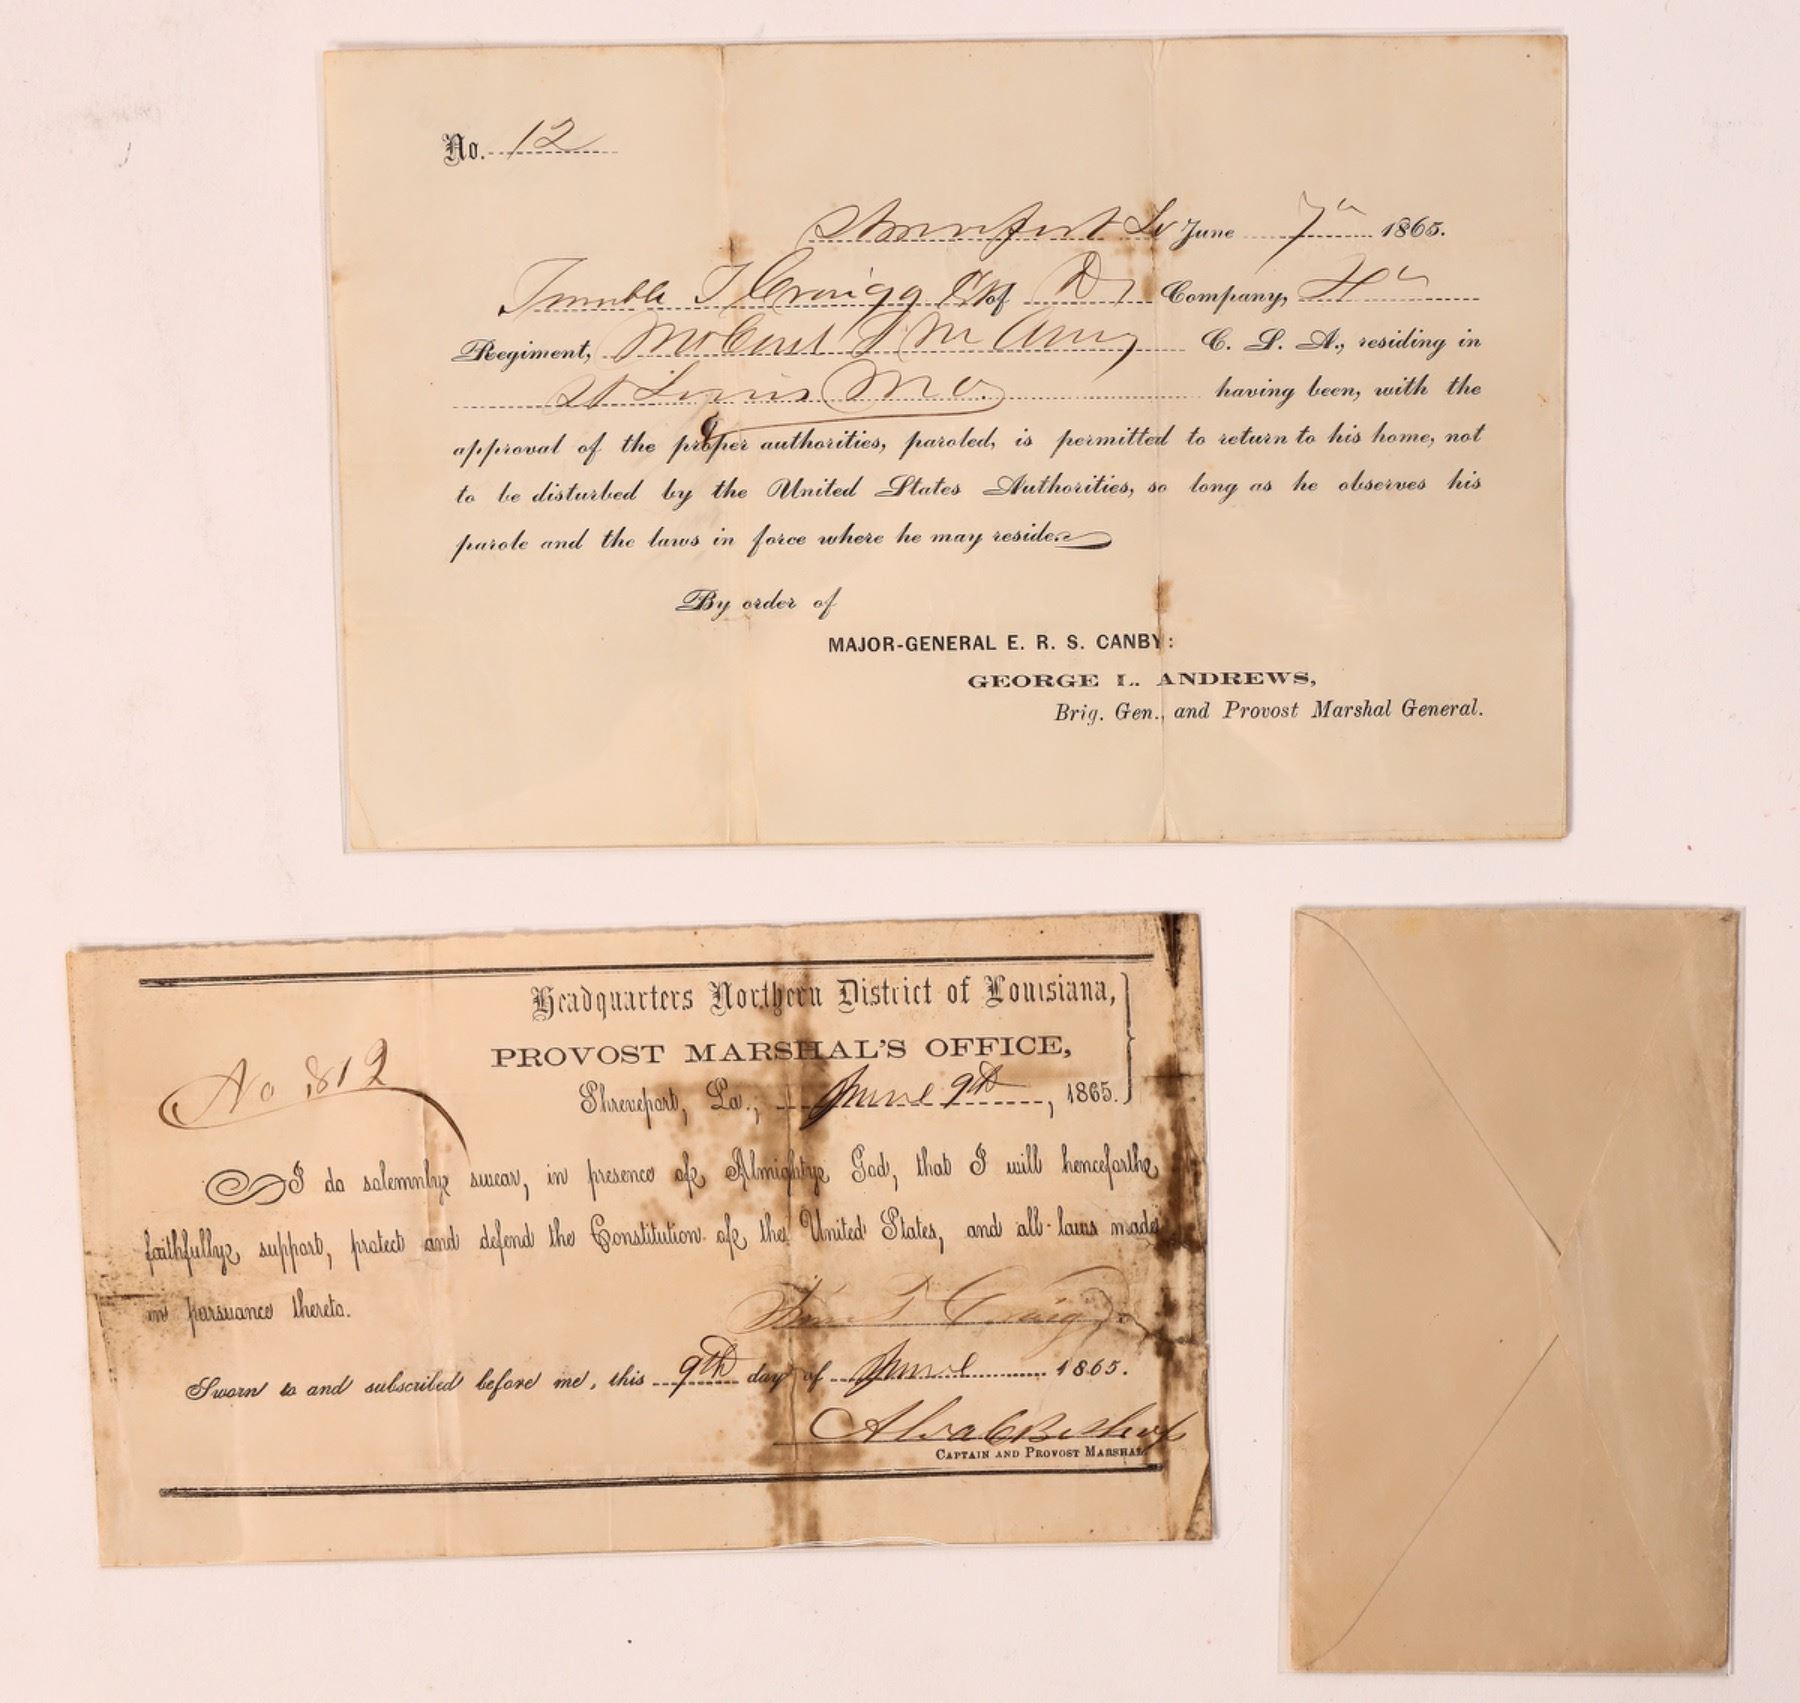 No. 12
Shreveport La June 7" 1865.
Trumble T Craigg of D Company, 4"
Regiment, Mo C. S. A., residing in
St Louis Mo. having been, with the
approval of the proper authorities, paroled, is permitted to return to his home, not
to be disturbed by the United States Authorities, so long as he observes his
parole and the laws in force where he may reside.
By order of
MAJOR-GENERAL E. R. S. CANBY:
GEORGE L. ANDREWS,
Brig. Gen., and Provost Marshal General.
Headquarters Northern District of Louisiana,
PROVOST MARSHAL'S OFFICE,
No 812
Shreveport, La., June 9th, 1865.
I do solemnly swear, in presence of Almighty God, that I will henceforth
faithfully support, protect and defend the Constitution of the United States, and all laws made
in pursuance thereto.
T Craigg
Sworn to and subscribed before me, this 9th day of June 1865.
Alva C Bishop
CAPTAIN AND PROVOST MARSHAL.